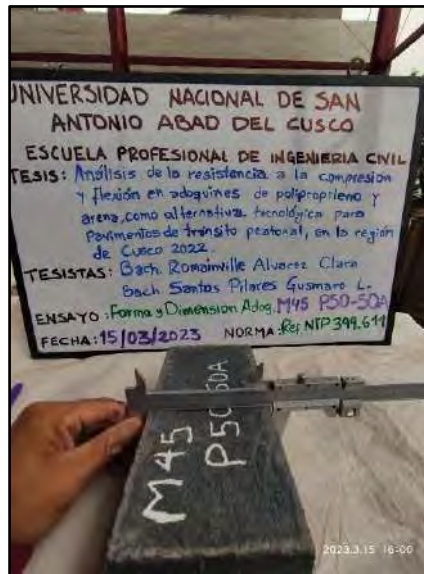 UNIVERSIDAD NACIONAL DE SAN
ANTONIO ABAD DEL CUSCO
ESCUELA PROFESIONAL DE INGENIERIA CIVIL
TESIS: Análisis de la resistencia a la compresion
y flexión en adoquines de polipropileno y
arena, como alternativa tecnológica para
Pavimentos de tránsito peatonal, en la región
de Cusco 2022.
TESISTAS: Bach. Romainville Alvarez Clara
Bach Santos Pilares Gusmaro L.
ENSAYO: Forma y Dimension Adoq. M45 P50-50A
FECHA: 15/03/2023 NORMA: Ref. NTP 399.611
M45
P50 50A
2023.3.15 16:00